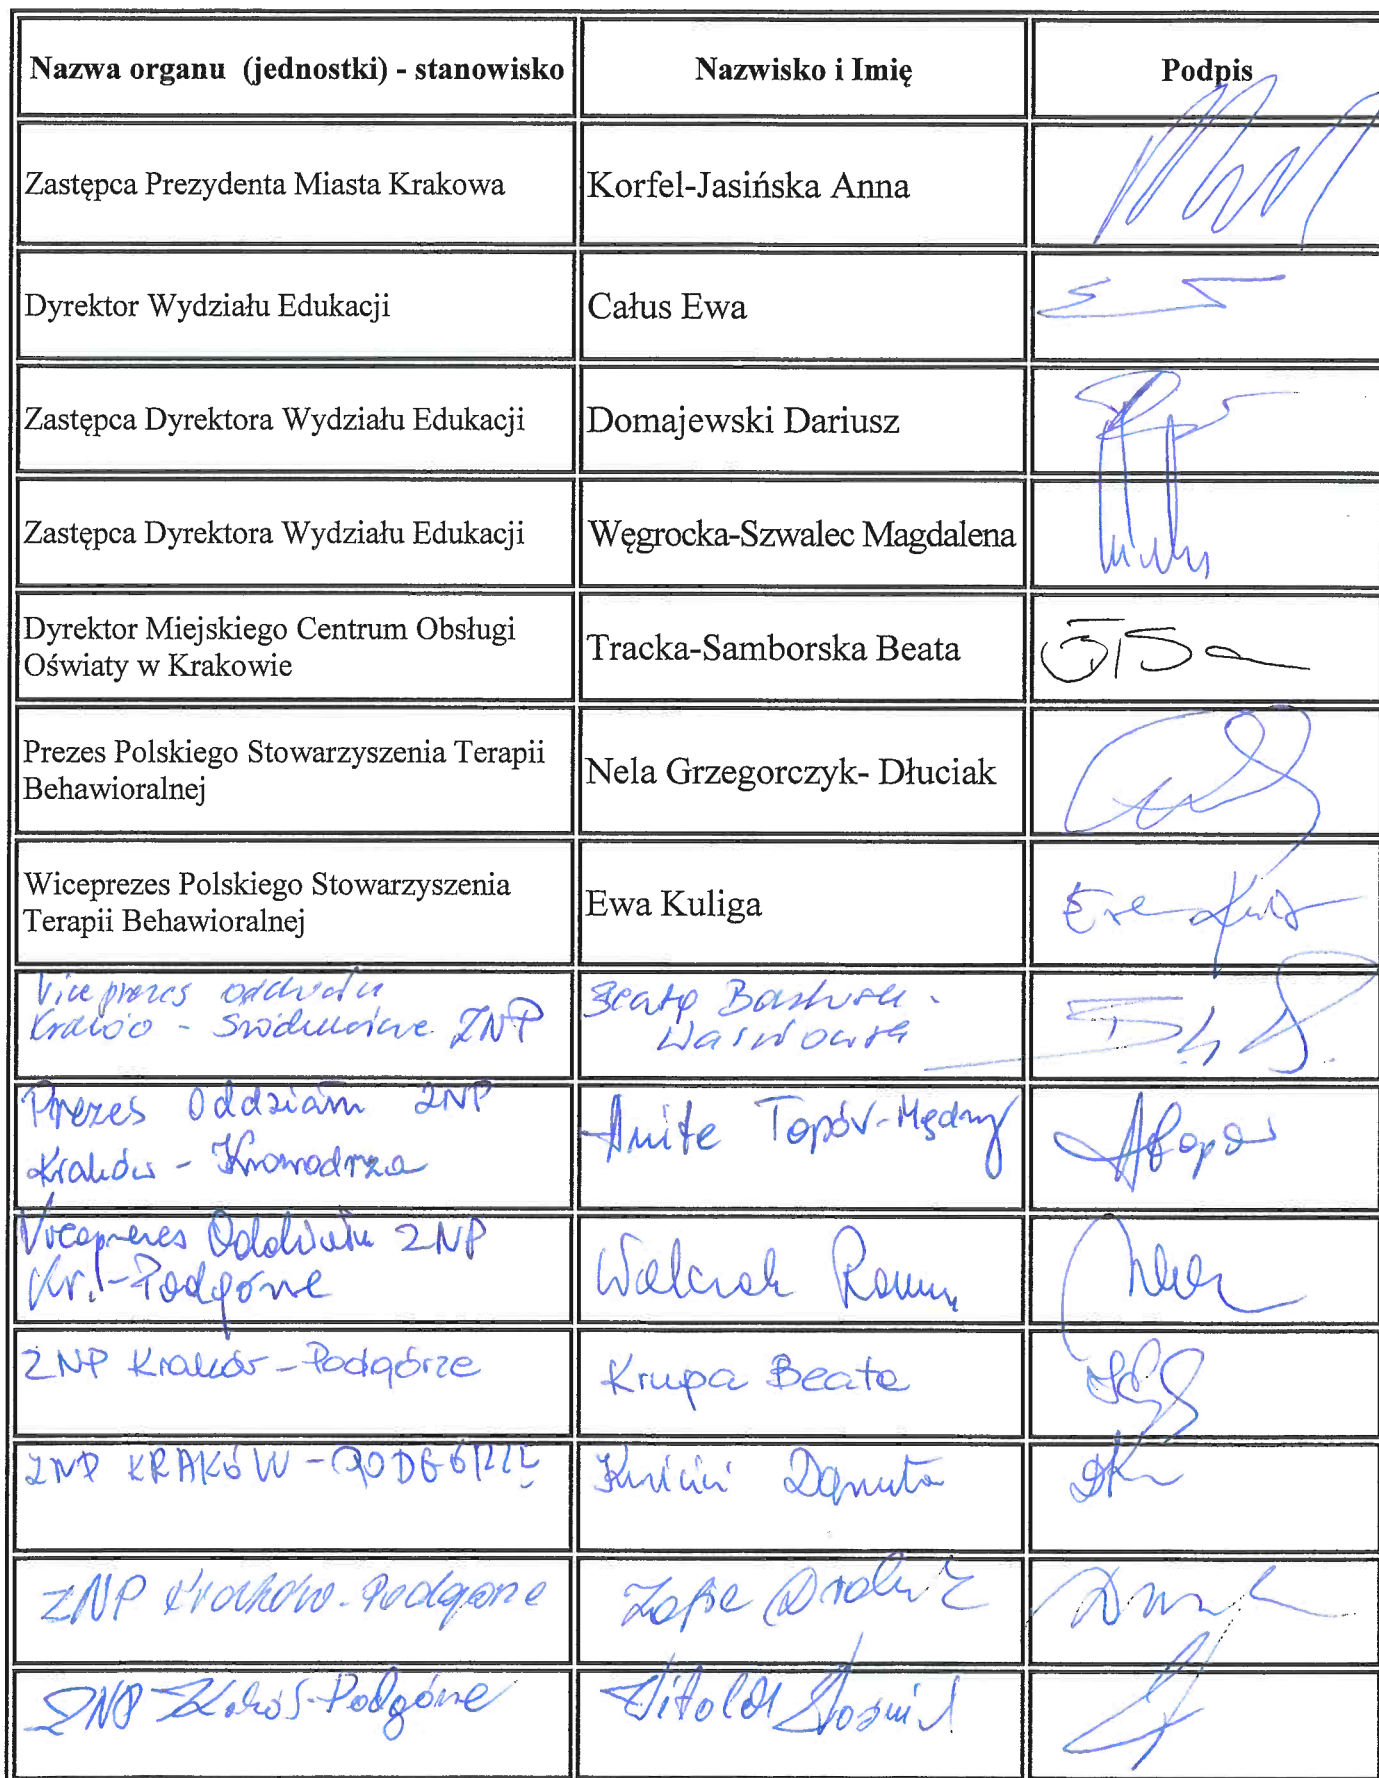 Nazwa organu (jednostki) - stanowisko
Nazwisko i Imię
Podpis
Zastępca Prezydenta Miasta Krakowa
Korfel-Jasińska Anna
Dyrektor Wydziału Edukacji
Całus Ewa
Zastępca Dyrektora Wydziału Edukacji
Domajewski Dariusz
Zastępca Dyrektora Wydziału Edukacji
Węgrocka-Szwalec Magdalena
Dyrektor Miejskiego Centrum Obsługi
Oświaty w Krakowie
Tracka-Samborska Beata
Prezes Polskiego Stowarzyszenia Terapii
Behawioralnej
Nela Grzegorczyk- Dłuciak
Wiceprezes Polskiego Stowarzyszenia
Terapii Behawioralnej
Ewa Kuliga
Viceprezes oddziału
Kraków - Śródmieście ZNP
Beata
Prezes Oddziału ZNP
Kraków - Krowodrza
Anita Topór-Mądry
Viceprezes Oddziału ZNP
Kr.-Podgórze
Walczak
ZNP Kraków-Podgórze
Krupa Beata
ZNP KRAKÓW-PODGÓRZE
Danuta
ZNP Kraków-Podgórze
Zofia
ZNP Kraków-Podgórze
Witold